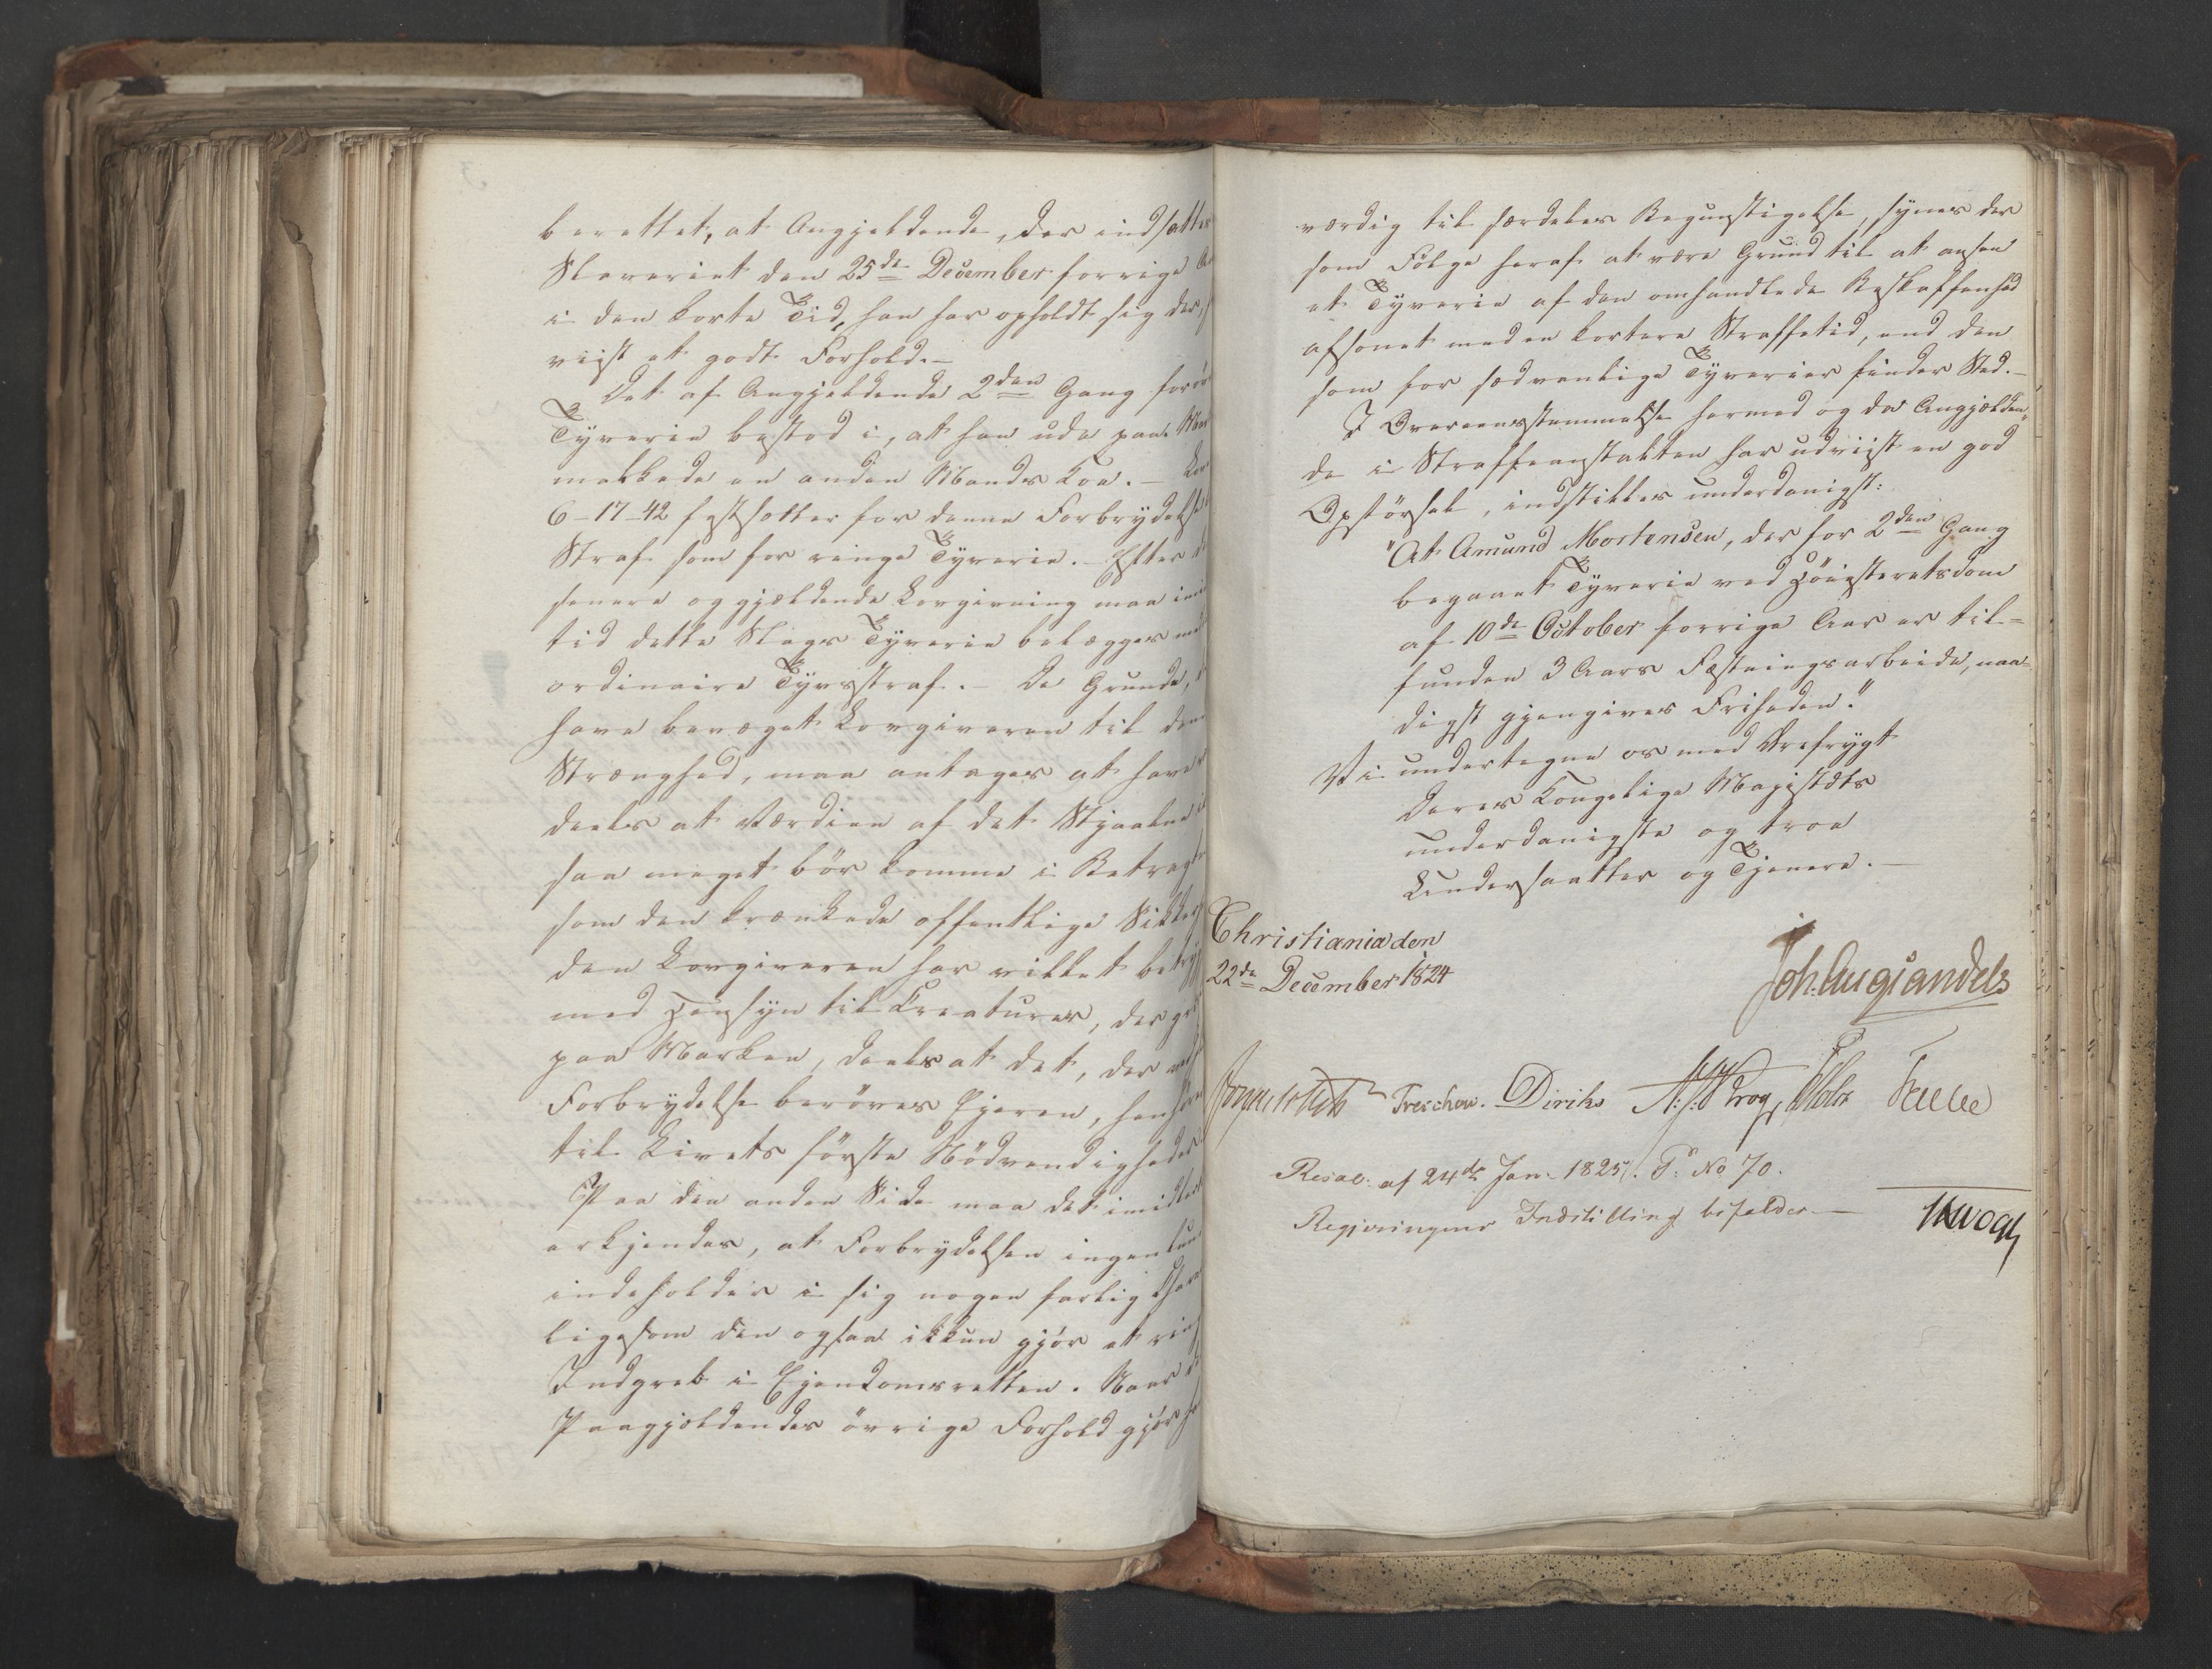 berettet, at Angjeldende, der indsattes
Slaveriet den 25de December forrige
i den korte Tid, han har opholdt sig der,
viist et godt Forhold.-
Det af Angjeldende 2den Gang
Tyverie bestod i, at han ude paa
malkede en anden Mands Koe. -
6-17-42 fastsætter for denne
Straf som for ringe Tyverie. - Efter
senere og gjældende Lovgivning maa
tid dette Slags Tyverie belægges
ordinaire Tyvsstraf. - De Grunde,
have bevæget Lovgiveren til
Strænghed, maa antages at have
deels at Værdien af det Stjaalne
saa meget bør komme i
som den krænkede offentlige
den Lovgiveren har villet
med Hensyn til Creaturer, der
paa Marken, deels at det, der
Forbrydelse berøves Ejeren,
til Livets første Nødvendigheder
Paa den anden Side maa det
erkjendes, at Forbrydelsen
indeholder i sig nogen farlig
ligesom den ogsaa ikkun gjør et
Indgreb i Ejendomsretten. Naar
Paagjældendes øvrige Forhold gjør
værdig til særdeles Begunstigelse, synes der
som Følge heraf at være Grund til at ansee
et Tyverie af den omhandlede Beskaffenhed
afsonet med en kortere Straffetid, end den
som for sædvanlige Tyverier finder Sted.-
I Overeensstemmelse hermed og da Angjelden-
de i Straffeanstalten har udviist en god
Opførsel, indstilles underdanigst:
"At Amund Mortensen, der for 2den Gang
begaaet Tyverie ved Høiesteretsdom
af 10de October forrige Aar er til-
funden 3 Aars Fæstningsarbeide, naa-
digst gjengives Friheden."
Vi undertegne os med Ærefrygt
Deres Kongelige Majestæts
underdanigste og troe
Undersaatter og Tjenere.-
Christiania den
22de December 1824
Joh. Aug Sandels
Treschow. Diriks Krog Holst
Resol. af 24de Jan. 1825. No 70.
Regjeringens Indstilling bifaldes. -